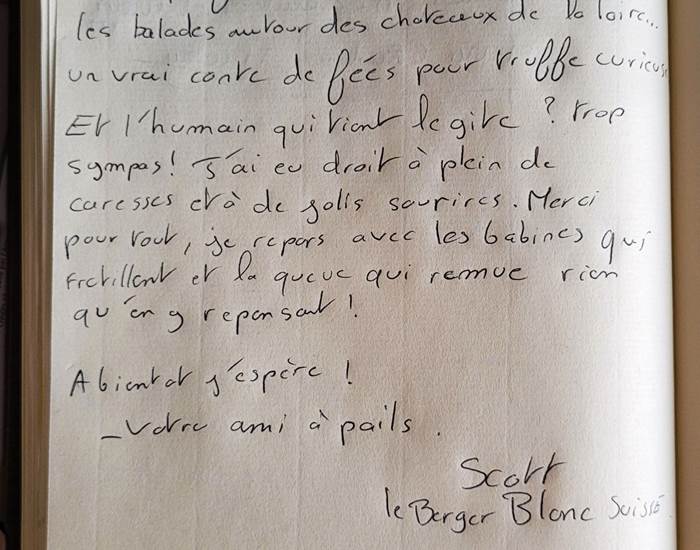 les balades autour des chateaux de la loire...
un vrai conte de fées pour truffe curieuse
Et l'humain qui tient le gite ? trop
sympas ! J'ai eu droit à plein de
caresses et à de jolis sourires. Merci
pour tout, je repars avec les babines qui
frétillent et la queue qui remue rien
qu'en y repensant !
A bientot j'espère !
_ Votre ami à pails.
Scott
le Berger Blanc Suisse